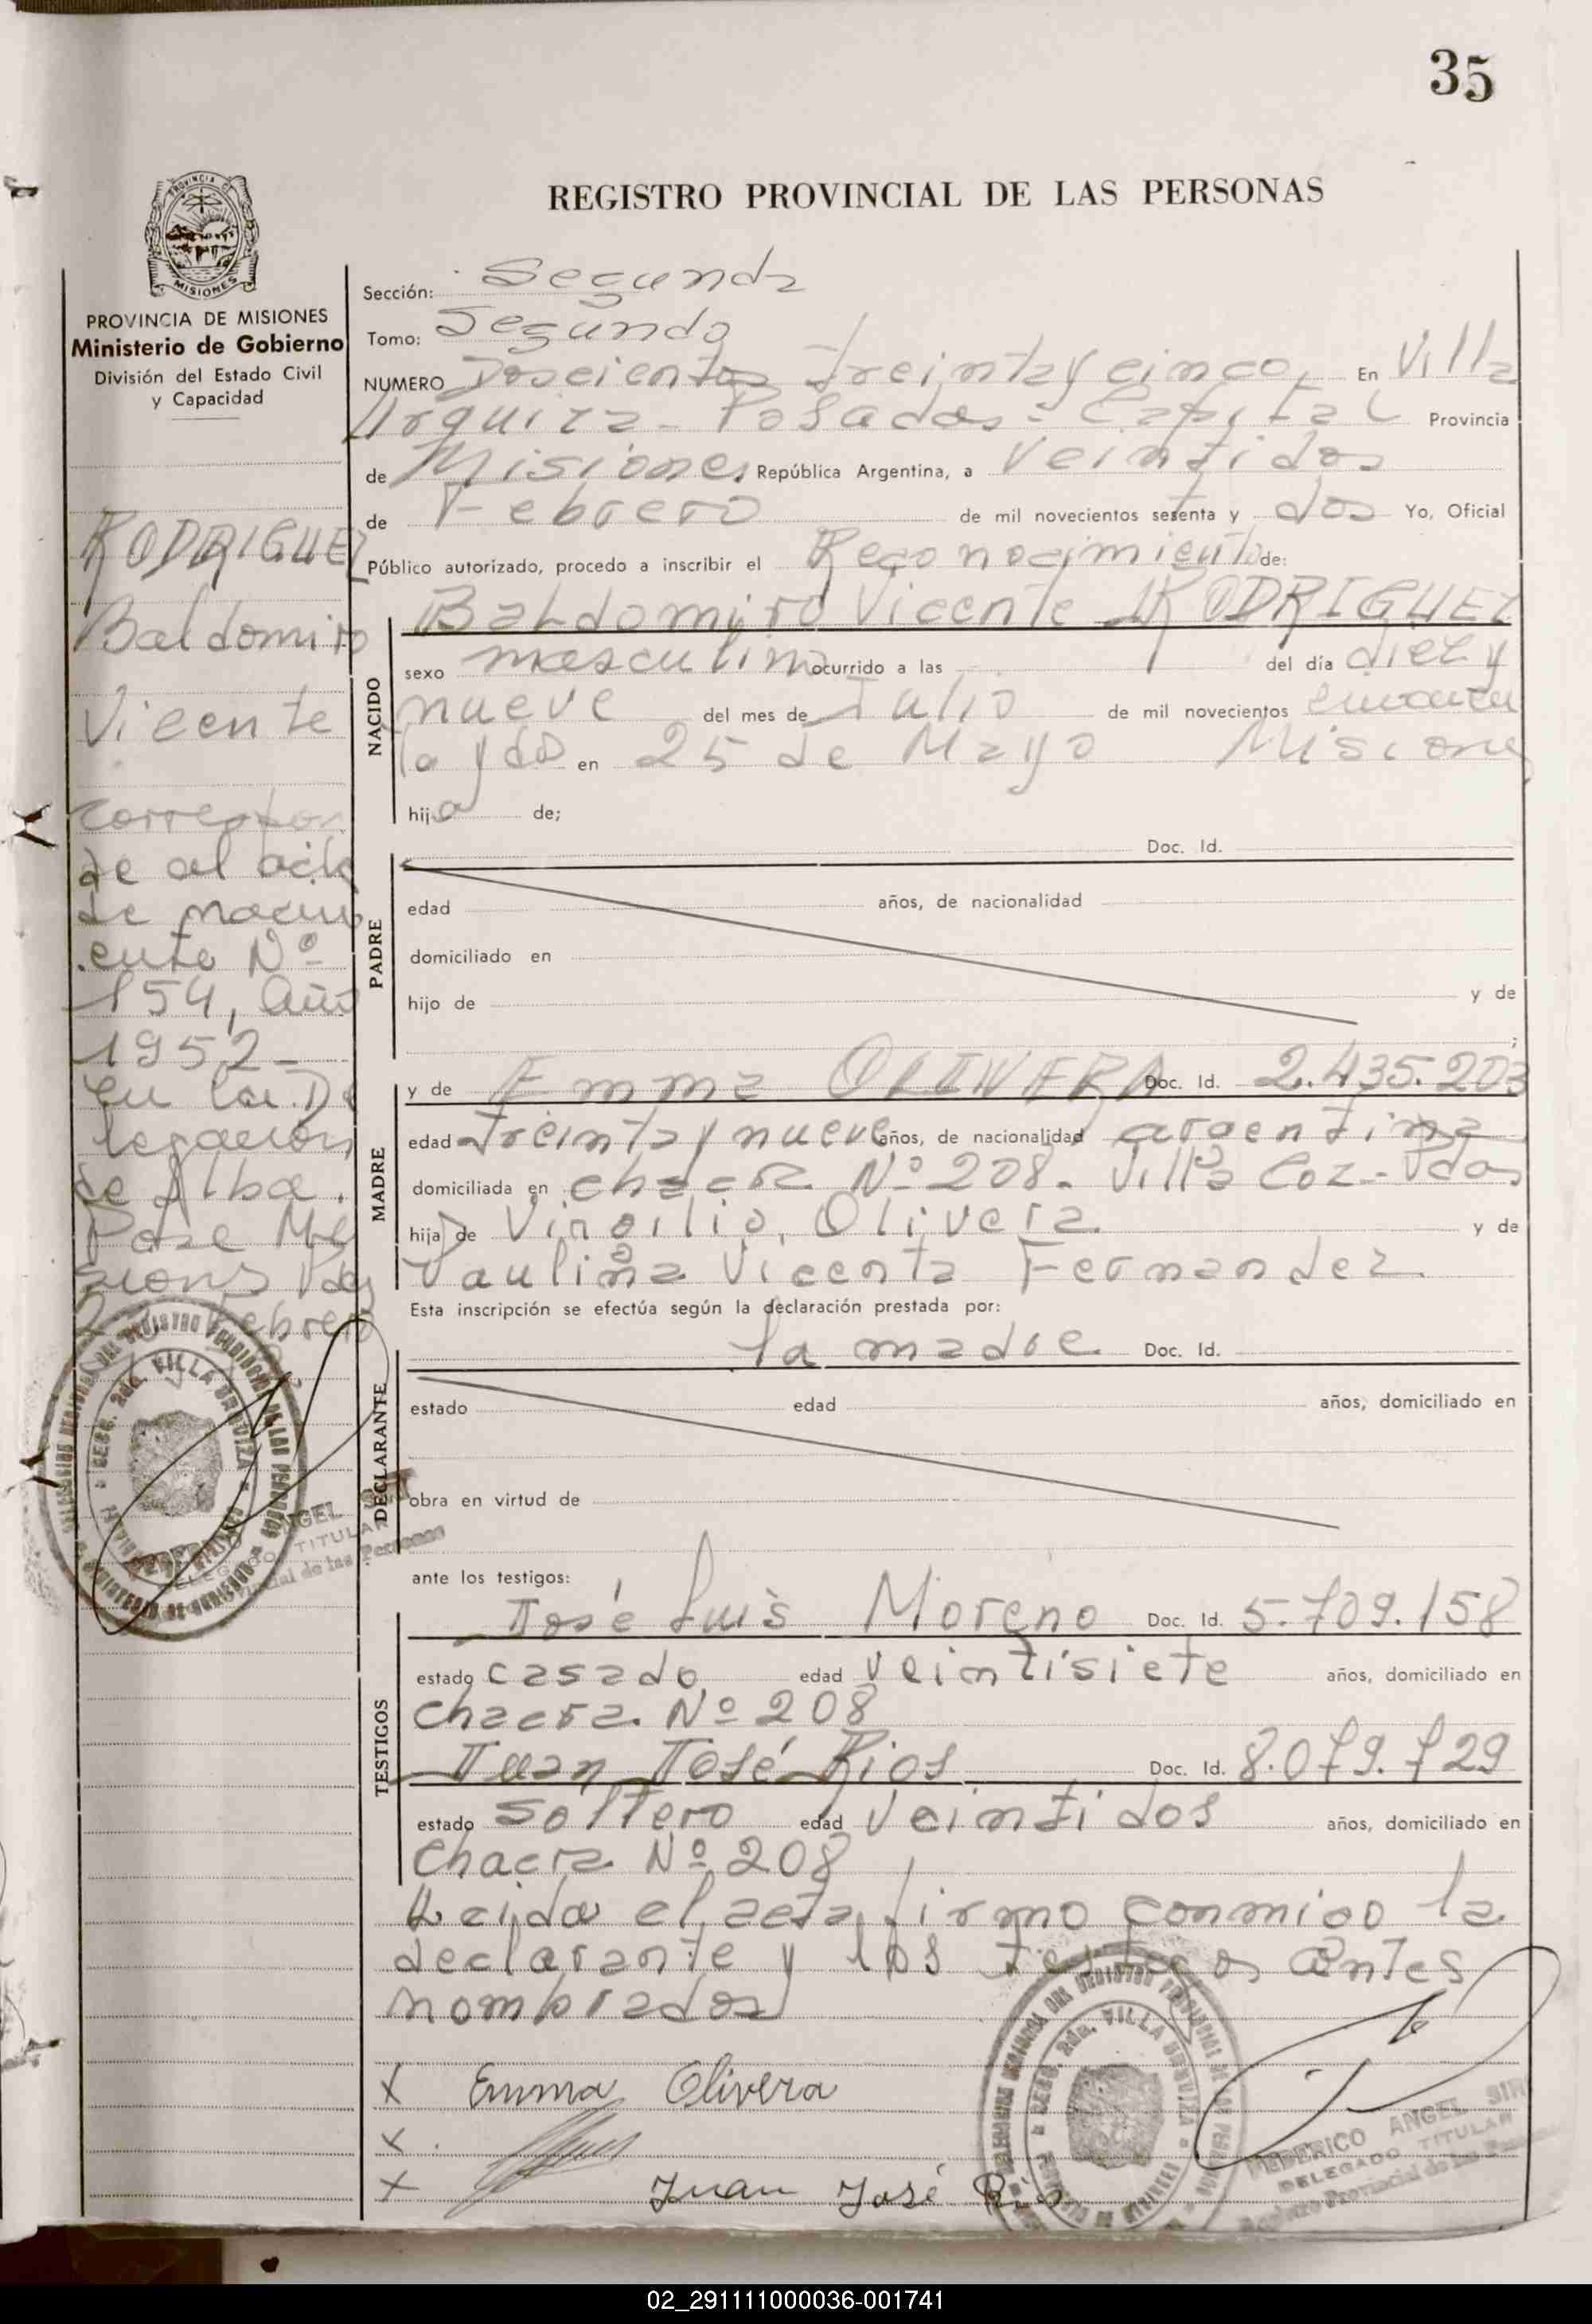 35
REGISTRO PROVINCIAL DE LAS PERSONAS
PROVINCIA DE
MISIONES
PROVINCIA DE MISIONES
Ministerio de Gobierno
División del Estado Civil
y Capacidad
RODRIGUEZ
Baldomiro
Vicente
correspon
de al acta
de nacimi
ento Nº
154, año
1952-
en la De
legación
de Alba
Pose Mi
siones Pdas
Febrero
Sección: Segunda
Tomo: Segundo
NUMERO Doscientos treinta y cinco, En Villa
Urquiza - Posadas - Capital Provincia
de Misiones República Argentina, a veintidos
de Febrero de mil novecientos setenta y dos Yo, Oficial
Público autorizado, procedo a inscribir el Reconocimiento de:
NACIDO
Baldomiro Vicente RODRIGUEZ
sexo masculino ocurrido a las del día diez y
nueve del mes de Julio de mil novecientos cincuen
ta y dos en 25 de Mayo Misiones
hijo de;
PADRE
Doc. Id.
edad años, de nacionalidad
domiciliado en
hijo de y de
;
MADRE
y de Emma OLIVERA Doc. Id. 2.435.203
edad treinta y nueve años, de nacionalidad argentina
domiciliada en chacra Nº 208. Villa Coz - Pdas
hija de Virgilio Olivera y de
Paulina Vicenta Fernandez
Esta inscripción se efectúa según la declaración prestada por:
DECLARANTE
la madre Doc. Id.
estado edad años, domiciliado en
obra en virtud de
ante los testigos:
TESTIGOS
José Luis Moreno Doc. Id. 5.709.158
estado casado edad veintisiete años, domiciliado en
chacra Nº 208
Juan José Rios Doc. Id. 8.079.729
estado soltero edad veintidos años, domiciliado en
Chacra Nº 208
Leida el acta, firmo conmigo la
declarante y los testigos antes
nombrados
X Emma Olivera
X
X Juan José Rios
DELEG. 2da. VILLA URQUIZA
FEDERICO ANGEL
DELEGADO TITULAR
Registro Provincial de las Personas
02_291111000036-001741